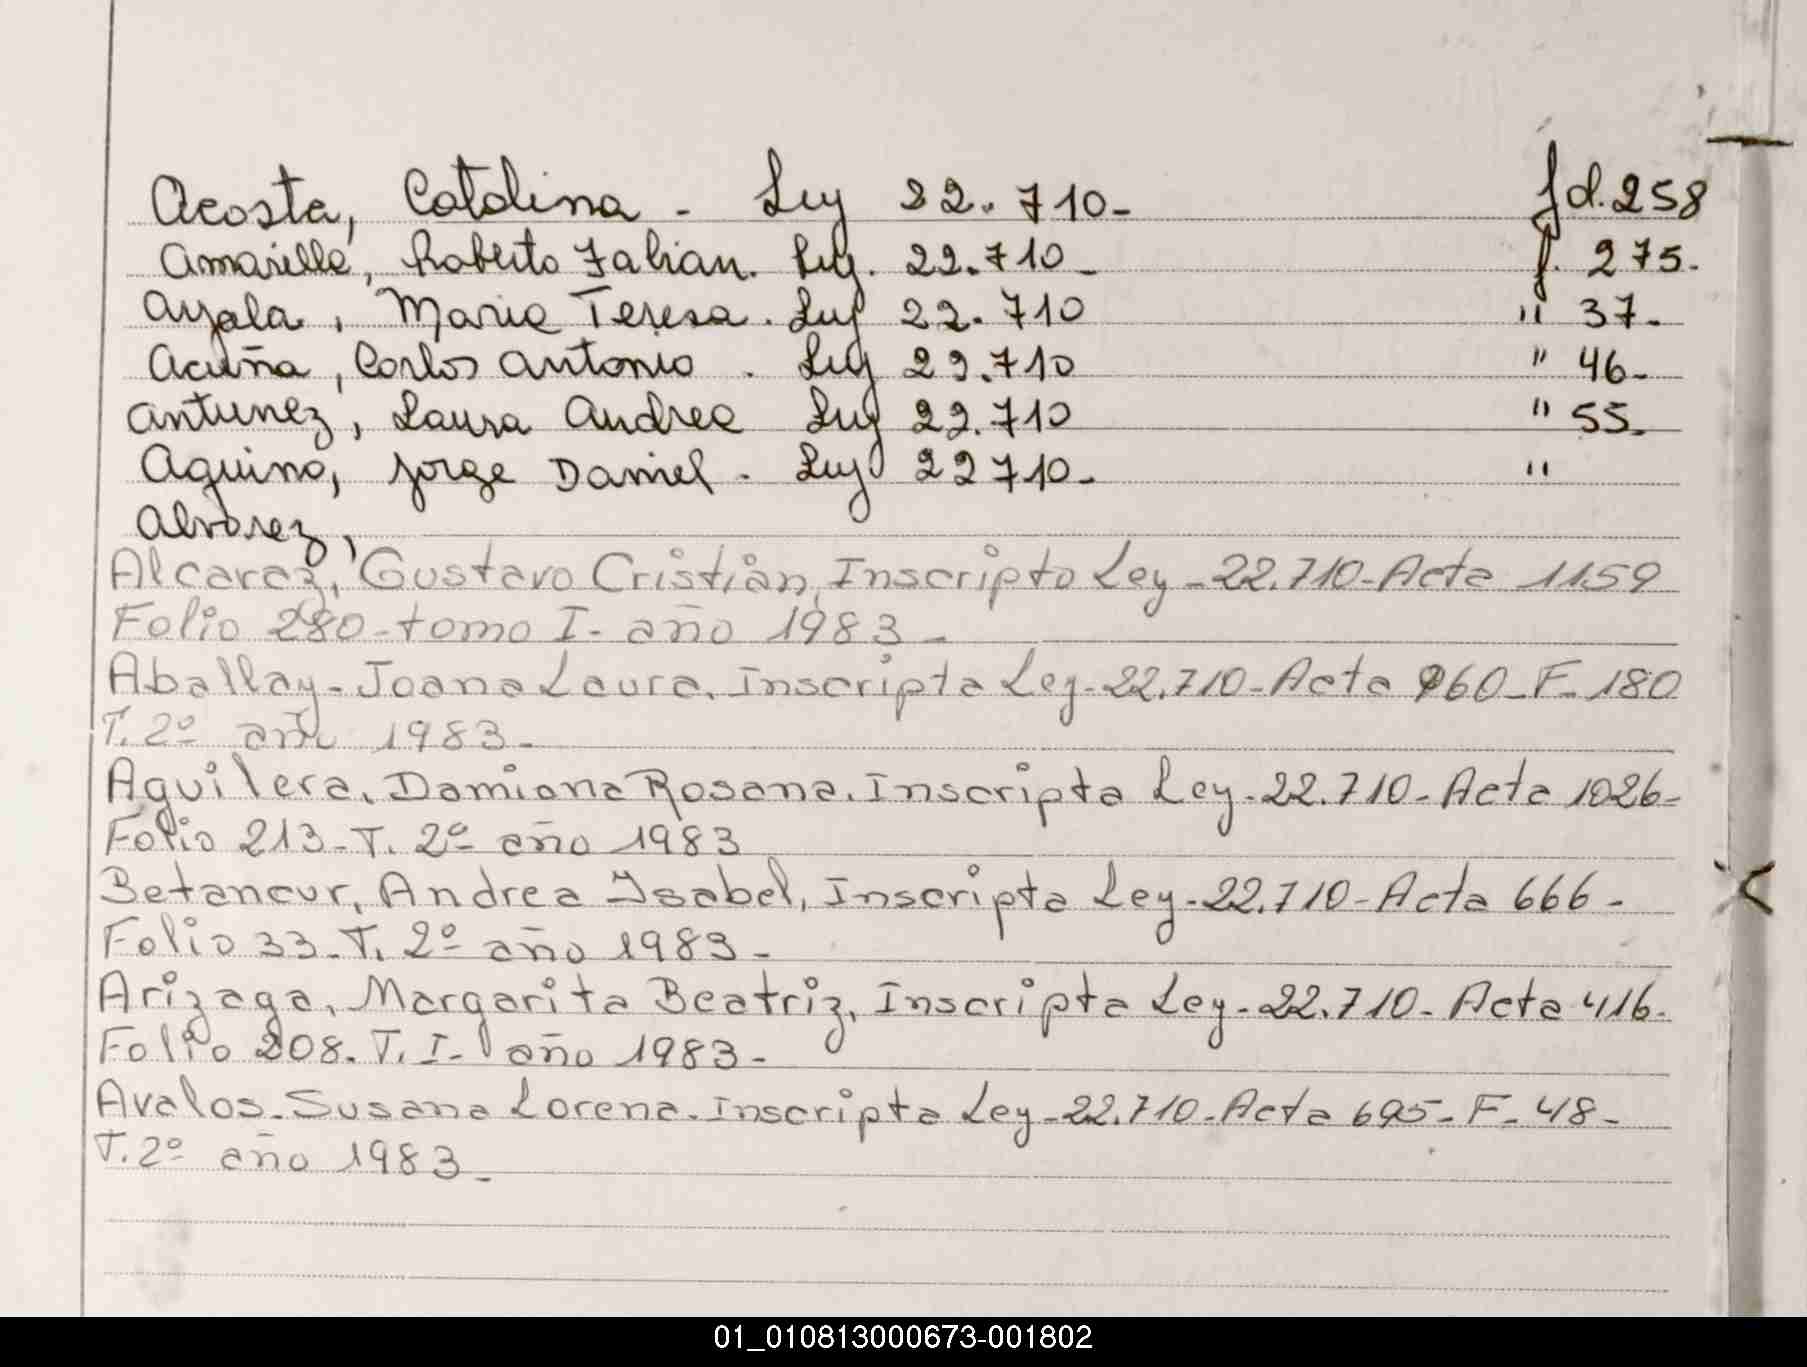 Acosta, Catalina - Ley 22.710- fd. 258
Amarilla, Roberto Fabian. Ley. 22.710- f. 275-
Ayala, Maria Teresa. Ley 22.710 " 37-
Acuña, Carlos Antonio. Ley 22.710 " 46-
Antunez, Laura Andrea Ley 22.710 " 55-
Aquino, Jorge Daniel. Ley 22710- "
Alvarez,
Alcaraz, Gustavo Cristián, Inscripto Ley-22.710-Acta 1159
Folio 280-tomo I- año 1983-
Aballay-Joana Laura. Inscripta Ley-22.710-Acta 960-F-180
T. 2º año 1983-
Aguilera, Damiana Rosana. Inscripta Ley-22.710-Acta 1026-
Folio 213-T. 2º año 1983
Betancur, Andrea Isabel, Inscripta Ley-22.710-Acta 666-
Folio 33-T. 2º año 1983-
Arizaga, Margarita Beatriz, Inscripta Ley-22.710-Acta 416-
Folio 208. T. I- año 1983-
Avalos-Susana Lorena. Inscripta Ley-22.710-Acta 695-F-48-
T. 2º año 1983-
01_010813000673-001802